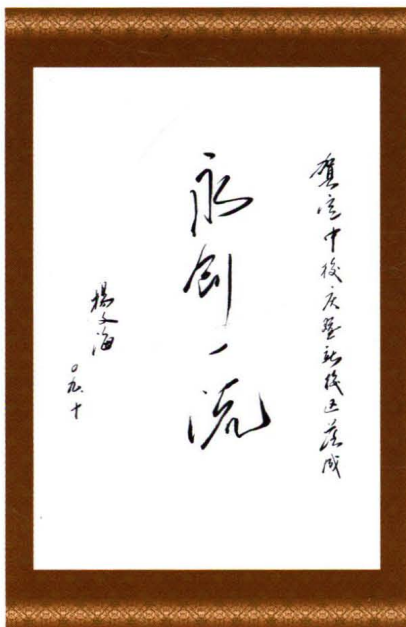 贺定中校庆暨新校区落成
永创一流
杨文海
〇九.十